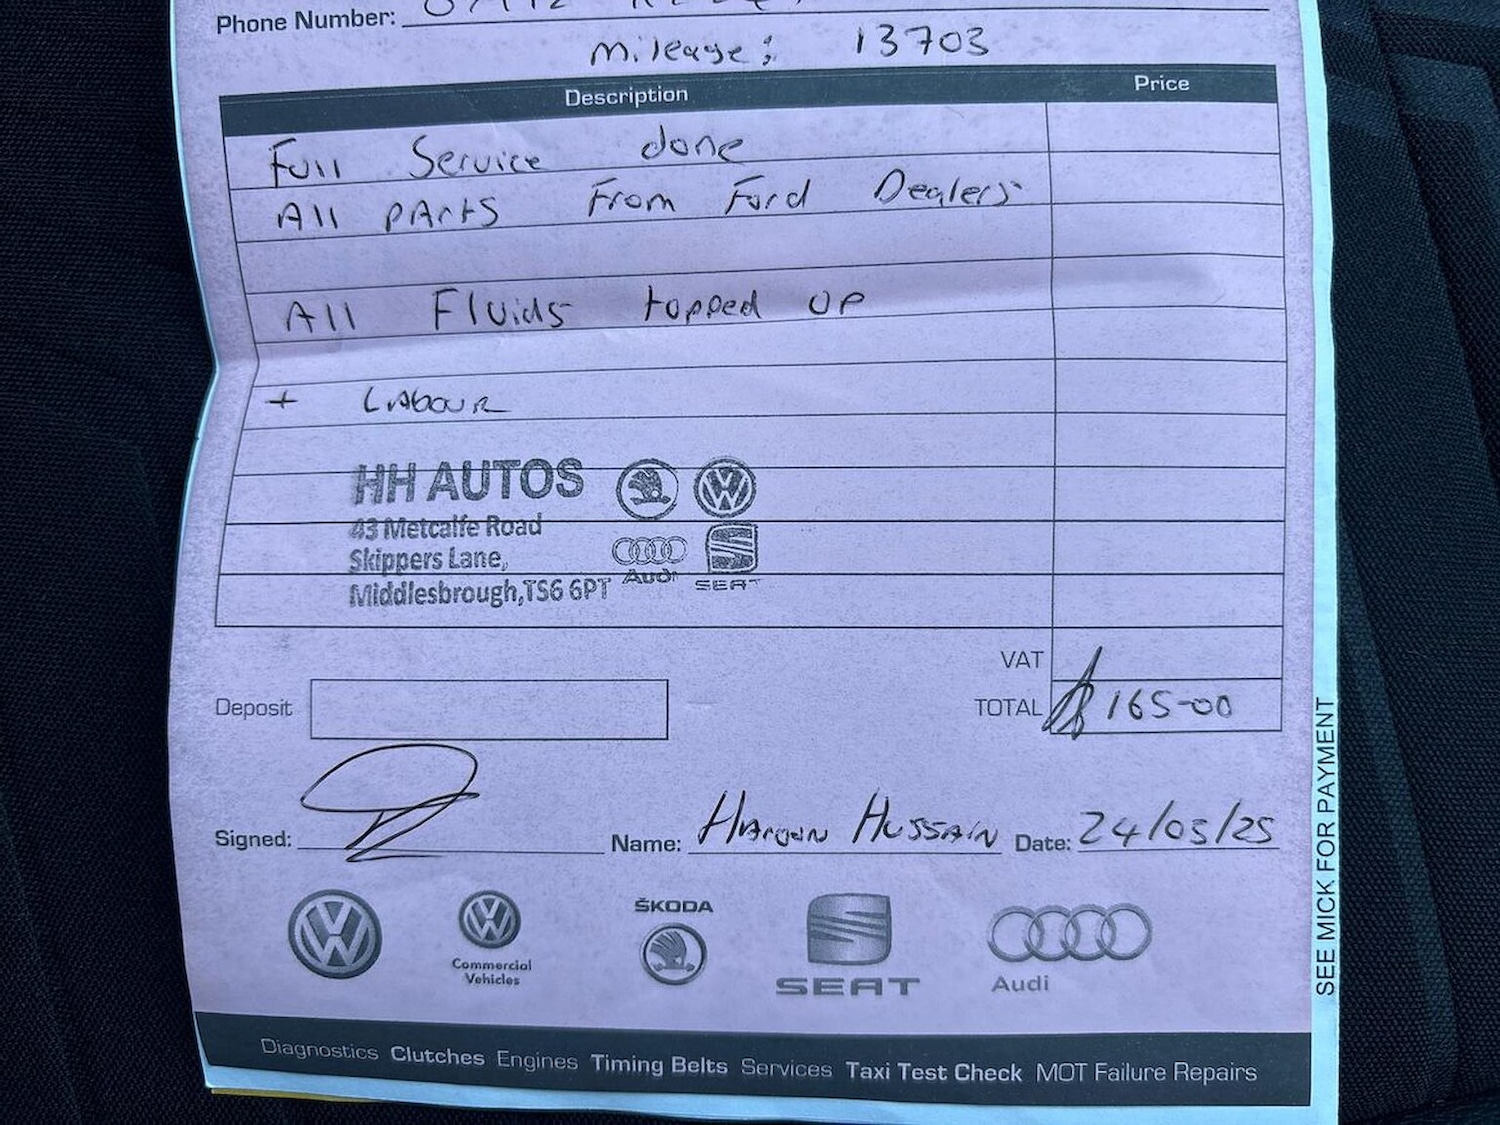 Phone Number:
Mileage: 13703
Description Price
Full Service done
All parts From Ford Dealers
All Fluids topped up
+ Labour
HH AUTOS
43 Metcalfe Road
Skippers Lane,
Middlesbrough,TS6 6PT
Audi
SEAT
VAT
Deposit TOTAL 165-00
Signed: Name: Haroon Hussain Date: 24/05/25
SEE MICK FOR PAYMENT
ŠKODA
Commercial
Vehicles
SEAT
Audi
Diagnostics Clutches Engines Timing Belts Services Taxi Test Check MOT Failure Repairs